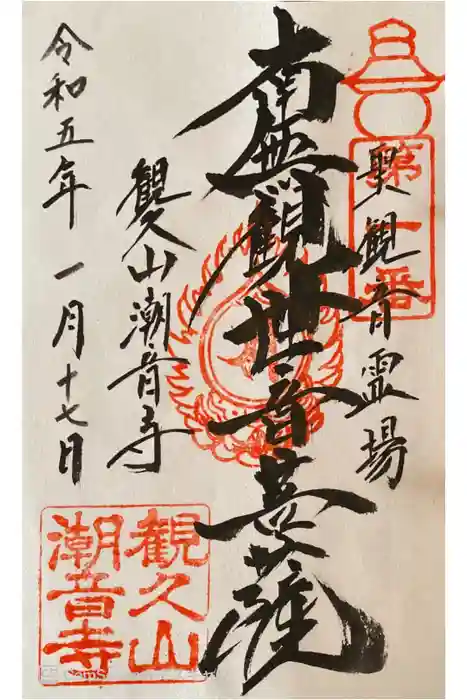 第一番
奥観音霊場
南無観世音菩薩
観久山潮音寺
令和五年一月十七日
観久山
潮音寺